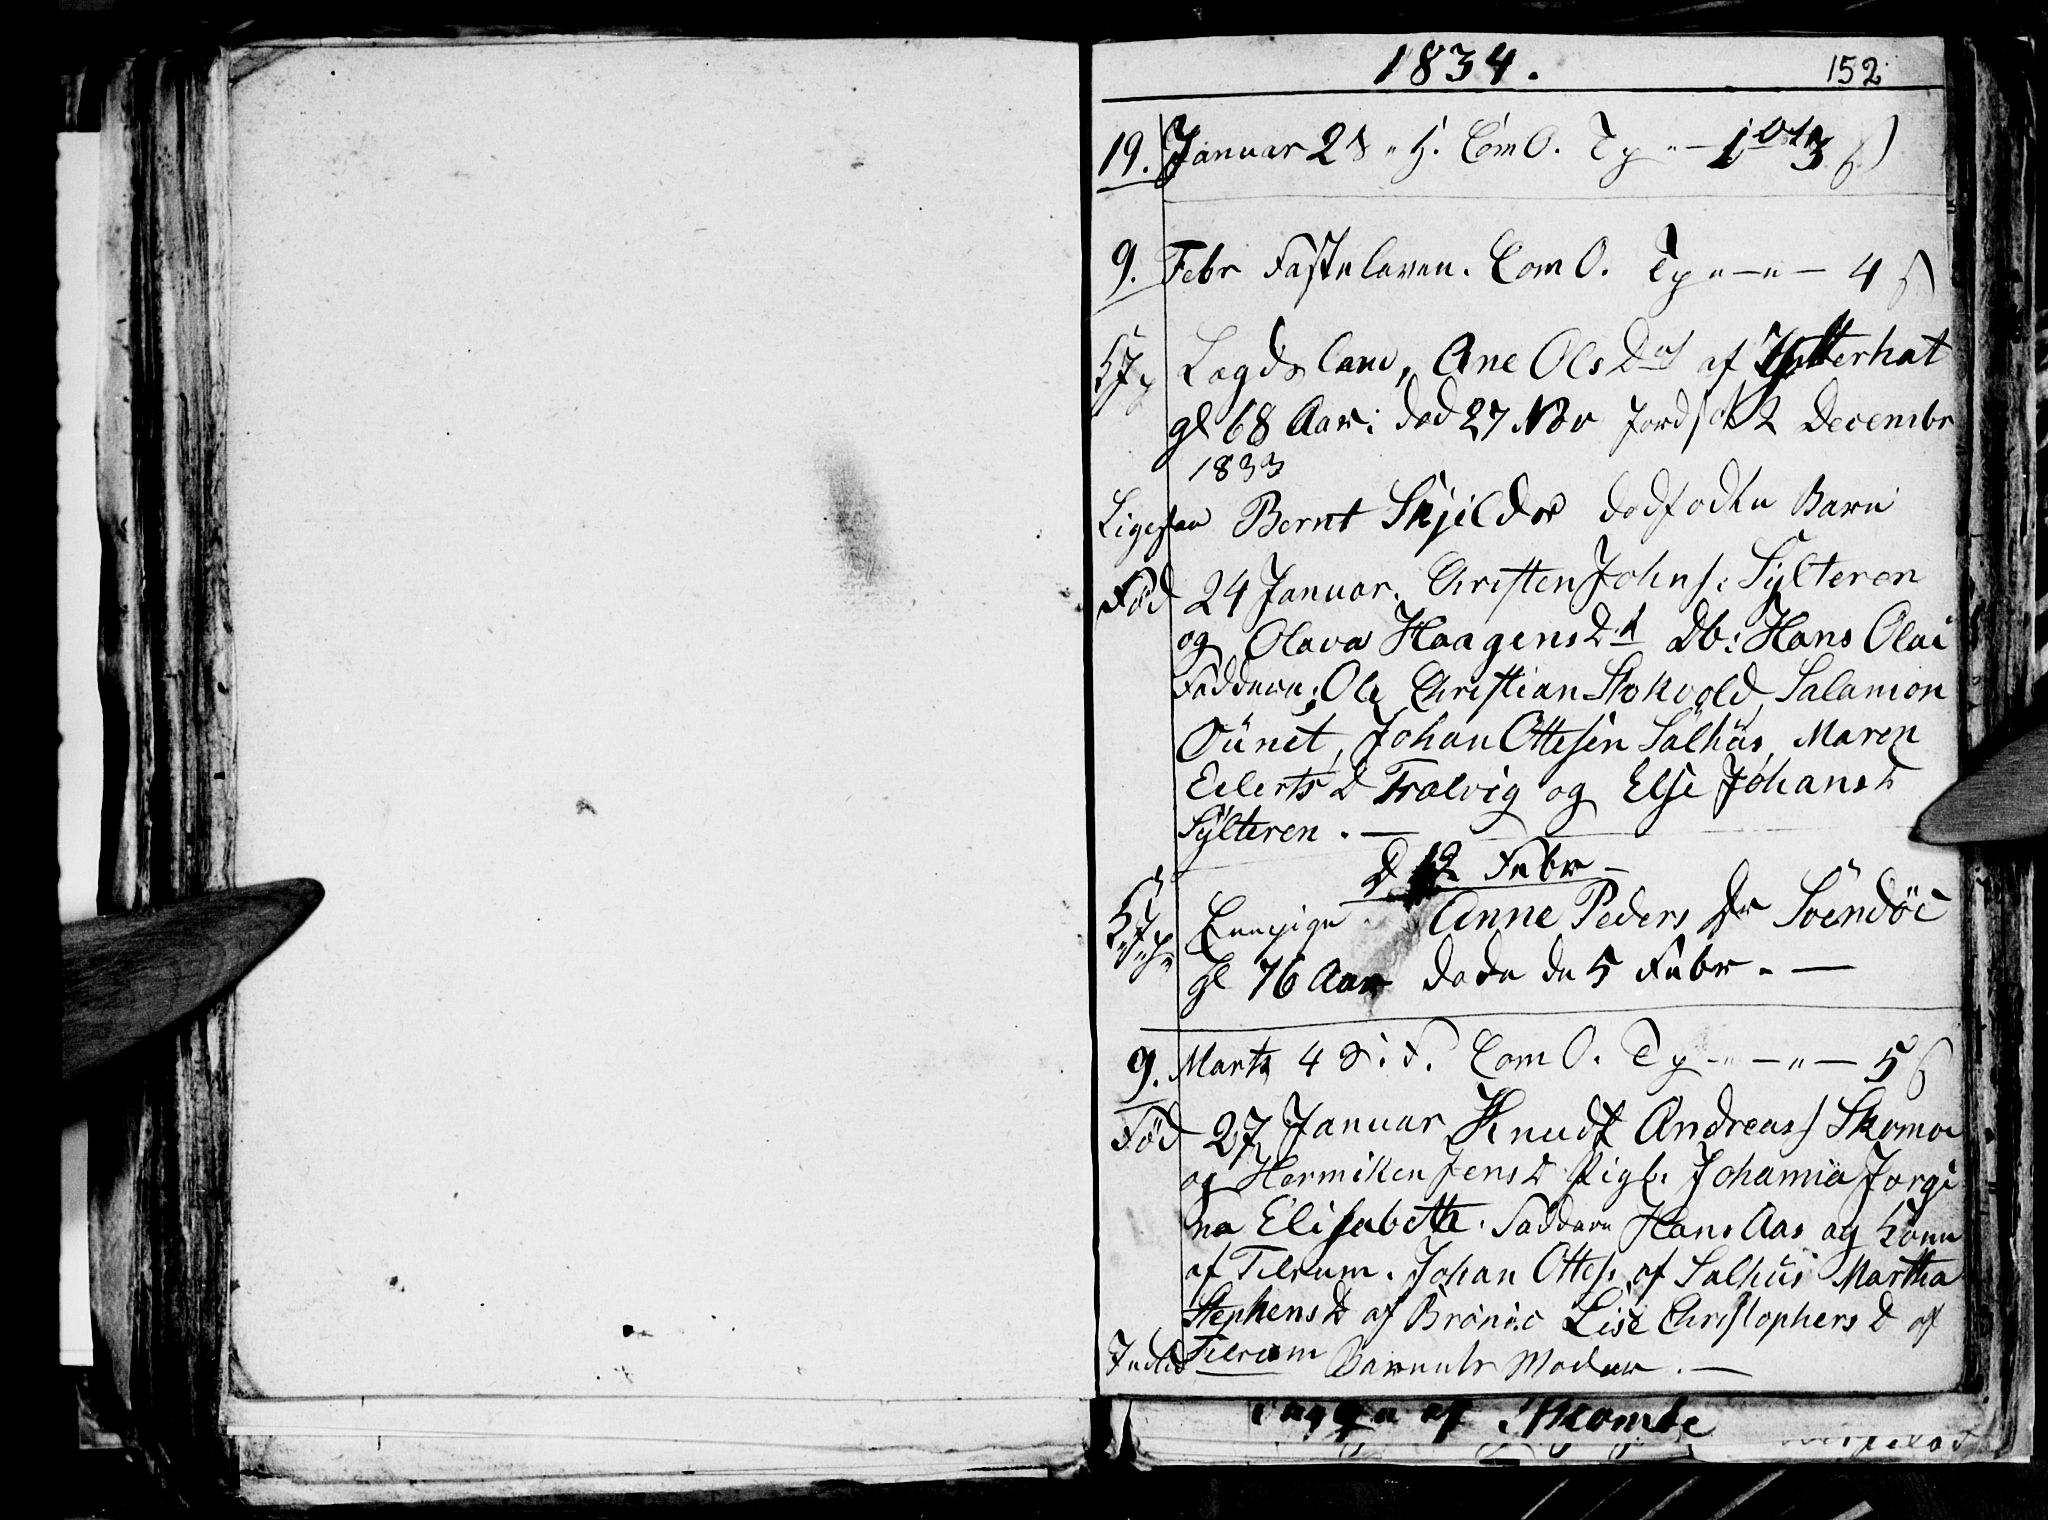 1834. 152
19. Januar 2 S. H. Com O. Tp 3
9. Febr Fastelaven. Com O. Tp — 4 s
Lægdslem, Ane Ols Dat af Ytterhat
gl 68 Aar: død 27 Nov Jords 2 Decembr
1833
Ligesaa Bernt Skjildes dødfødte Barn
Fød 24 Januar. Christen Johns: Sylteren
og Olava Haagens D Db: Hans Olai
Faddere: Ole Christian Stokvold, Salamon
Øünet, Johan Ottesen Salhüs, Maren
Eilerts D Trælvig og Else Johans D
Sylteren. —
D 12 Febr —
Anne Peders Dr
gl 76 Aar døde de 5 Febr. —
9. Marts 4 S: i F. Com O. Tp — 5 s
Fød 27 Januar Knudt Andreas Skomo
og Hermiken Jens D Pigb. Johanna Jorgi
na Elisabeth. Faddere Hans Aas og Kone
af Tilrum. Johan Ottes. af Salhüs Martha
Stephens D af Brönöe Lise Christophers D af
Tilrum Barnets Moder. —
af